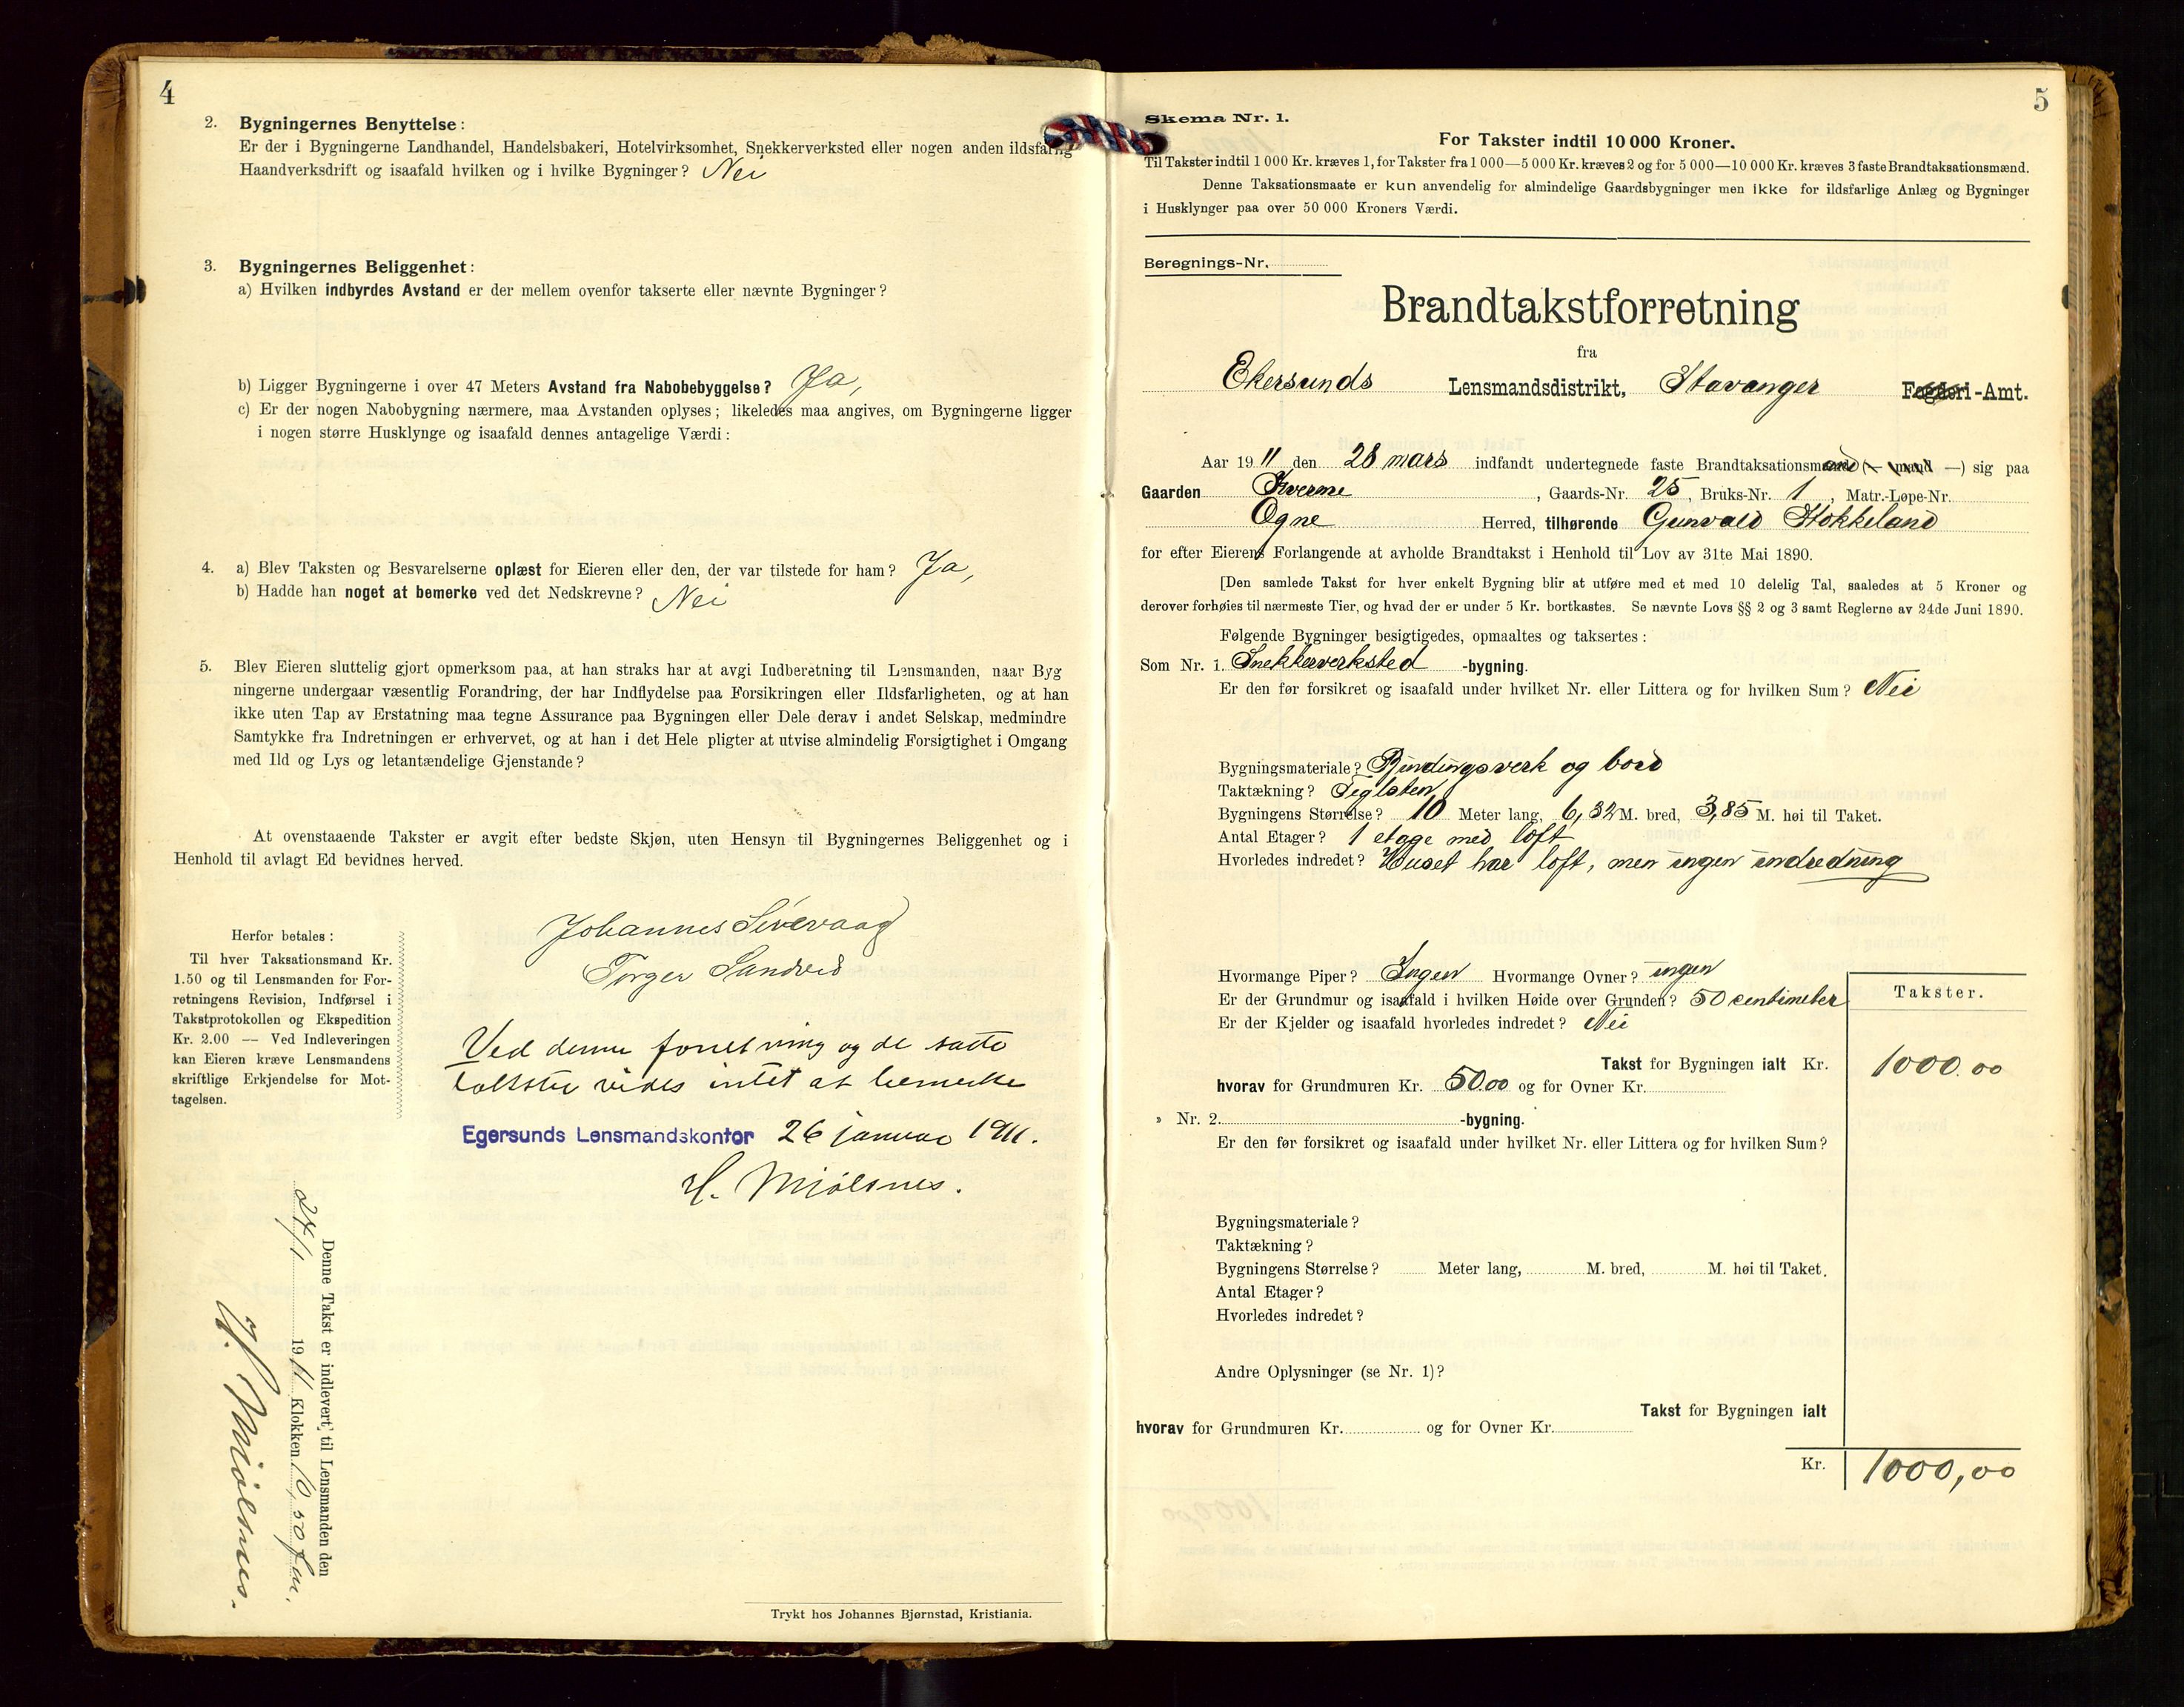 4
2. Bygningernes Benyttelse:
Er der i Bygningerne Landhandel, Handelsbakeri, Hotelvirksomhet, Snekkerverksted eller nogen anden ildsfarlig
Haandverksdrift og isaafald hvilken og i hvilke Bygninger? Nei
3. Bygningernes Beliggenhet:
a) Hvilken indbyrdes Avstand er der mellem ovenfor takserte eller nævnte Bygninger?
b) Ligger Bygningerne i over 47 Meters Avstand fra Nabobebyggelse? Ja,
c) Er der nogen Nabobygning nærmere, maa Avstanden oplyses; likeledes maa angives, om Bygningerne ligger
i nogen større Husklynge og isaafald dennes antagelige Værdi:
4. a) Blev Taksten og Besvarelserne oplæst for Eieren eller den, der var tilstede for ham? Ja,
b) Hadde han noget at bemerke ved det Nedskrevne? Nei
5. Blev Eieren sluttelig gjort opmerksom paa, at han straks har at avgi Indberetning til Lensmanden, naar Byg
ningerne undergaar væsentlig Forandring, der har Indflydelse paa Forsikringen eller Ildsfarligheten, og at han
ikke uten Tap av Erstatning maa tegne Assurance paa Bygningen eller Dele derav i andet Selskap, medmindre
Samtykke fra Indretningen er erhvervet, og at han i det Hele pligter at utvise almindelig Forsigtighet i Omgang
med Ild og Lys og letantændelige Gjenstande?
At ovenstaaende Takster er avgit efter bedste Skjøn, uten Hensyn til Bygningernes Beliggenhet og i
Henhold til avlagt Ed bevidnes herved.
Johannes Sirevaag
Torger Sandved
Herfor betales:
Til hver Taksationsmand Kr.
1.50 og til Lensmanden for For-
retningens Revision, Indførsel i
Takstprotokollen og Ekspedition
Kr. 2.00 — Ved Indleveringen
kan Eieren kræve Lensmandens
skriftlige Erkjendelse for Mot-
tagelsen.
Ved denne forretning og de satte
takster vides intet at bemerke
Egersunds Lensmandskontor 26 januar 1911.
H. Mjølsnes.
Denne Takst er indlevert til Lensmanden den
24/1 1911 Klokken 10,50 fm.
H. Mjølsnes.
Trykt hos Johannes Bjørnstad, Kristiania.
5
Skema Nr. 1.
For Takster indtil 10 000 Kroner.
Til Takster indtil 1 000 Kr. kræves 1, for Takster fra 1 000—5 000 Kr. kræves 2 og for 5 000—10 000 Kr. kræves 3 faste Brandtaksationsmænd.
Denne Taksationsmaate er kun anvendelig for almindelige Gaardsbygninger men ikke for ildsfarlige Anlæg og Bygninger
i Husklynger paa over 50 000 Kroners Værdi.
Beregnings-Nr.
Brandtakstforretning
fra
Ekersunds Lensmandsdistrikt, Stavanger Fogderi-Amt.
Aar 1911 den 28 mars indfandt undertegnede faste Brandtaksationsmænd (— mand —) sig paa
Gaarden Kverme, Gaards-Nr. 25, Bruks-Nr. 1, Matr.-Løpe-Nr.
Ogne Herred, tilhørende Gunvald Stokkeland
for efter Eierens Forlangende at avholde Brandtakst i Henhold til Lov av 31te Mai 1890.
[Den samlede Takst for hver enkelt Bygning blir at utføre med et med 10 delelig Tal, saaledes at 5 Kroner og
derover forhøies til nærmeste Tier, og hvad der er under 5 Kr. bortkastes. Se nævnte Lovs §§ 2 og 3 samt Reglerne av 24de Juni 1890.
Følgende Bygninger besigtigedes, opmaaltes og taksertes:
Som Nr. 1. Snekkerverksted -bygning.
Er den før forsikret og isaafald under hvilket Nr. eller Littera og for hvilken Sum? Nei
Bygningsmateriale? Bindingsverk og bord
Taktækning? Teglsten
Bygningens Størrelse? 10 Meter lang, 6,32 M. bred, 3,85 M. høi til Taket.
Antal Etager? 1 etage med loft
Hvorledes indredet? Huset har loft, men ingen indredning
Hvormange Piper? Ingen Hvormange Ovner? ingen
Er der Grundmur og isaafald i hvilken Høide over Grunden? 50 centimeter
Takster.
Er der Kjelder og isaafald hvorledes indredet? Nei
Takst for Bygningen ialt Kr. 1000.00
hvorav for Grundmuren Kr. 50.00 og for Ovner Kr.
» Nr. 2. -bygning.
Er den før forsikret og isaafald under hvilket Nr. eller Littera og for hvilken Sum?
Bygningsmateriale?
Taktækning?
Bygningens Størrelse? Meter lang, M. bred, M. høi til Taket.
Antal Etager?
Hvorledes indredet?
Andre Oplysninger (se Nr. 1)?
Takst for Bygningen ialt
hvorav for Grundmuren Kr. og for Ovner Kr.
Kr. 1000,00